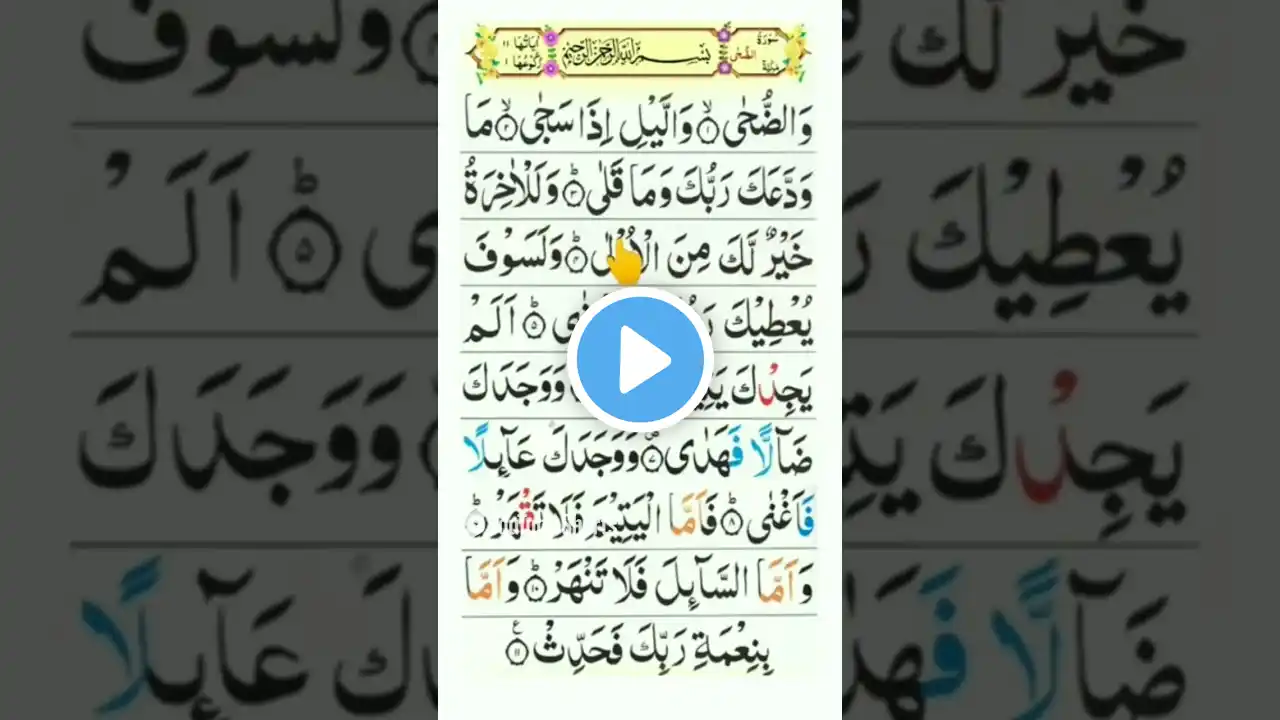 سُوْرَةُ الضُّحٰی مَکِّیَّۃٌ
بِسْمِ اللّٰهِ الرَّحْمٰنِ الرَّحِيْمِ
اٰيَاتُهَا ١١ رُكُوْعُهَا ١
وَالضُّحٰى ۙ‏﴿۱﴾ وَالَّيْلِ اِذَا سَجٰى ۙ‏﴿۲﴾ مَا
وَدَّعَكَ رَبُّكَ وَمَا قَلٰى ؕ‏﴿۳﴾ وَلَلْاٰخِرَةُ
خَيْرٌ لَّكَ مِنَ الْاُوْلٰى ؕ‏﴿۴﴾ وَلَسَوْفَ
يُعْطِيْكَ ؕ‏﴿۵﴾ اَلَمْ
يَجِدْكَ وَوَجَدَكَ
ضَآلًّا فَهَدٰى ۪‏﴿۷﴾ وَوَجَدَكَ عَآىِٕلًا
فَاَغْنٰى ؕ‏﴿۸﴾ فَاَمَّا الْيَتِيْمَ فَلَا تَقْهَرْ ؕ
وَاَمَّا السَّآىِٕلَ فَلَا تَنْهَرْ ؕ‏﴿۱۰﴾ وَاَمَّا
بِنِعْمَةِ رَبِّكَ فَحَدِّثْ ﴿۱۱﴾